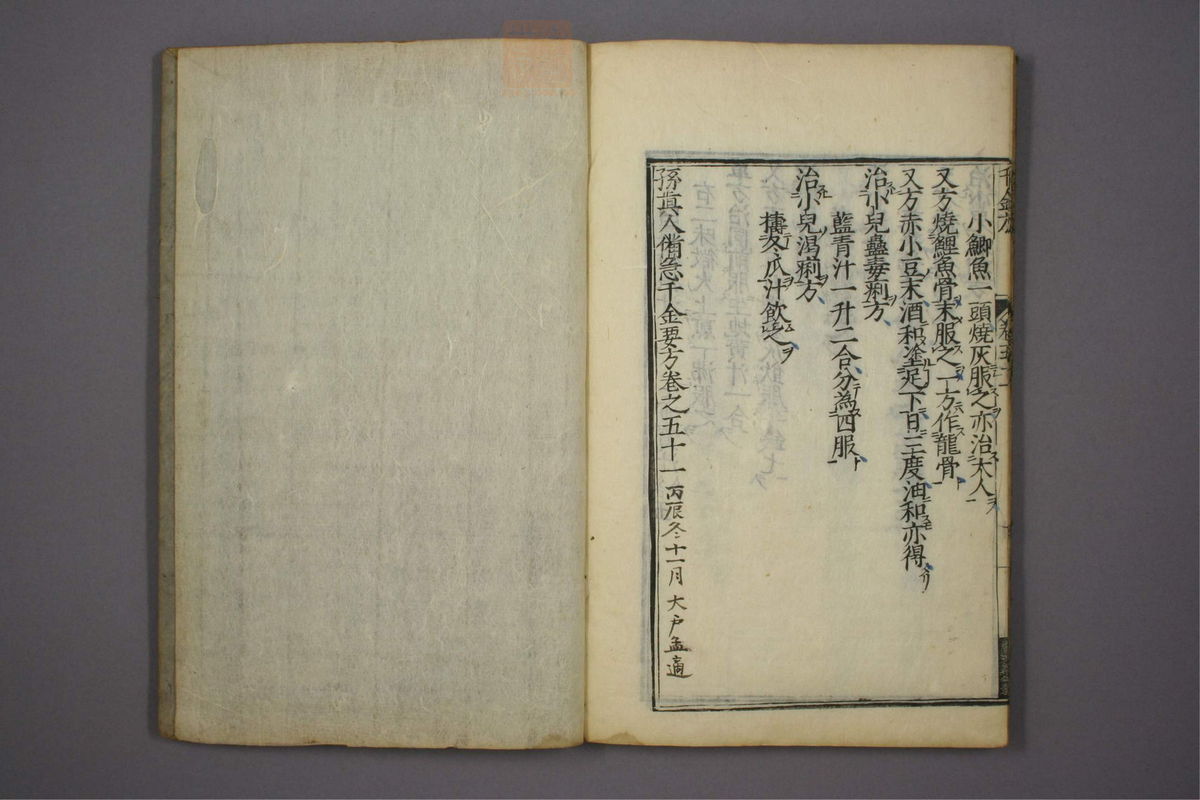 千金方 卷五十一
小鯽魚一頭燒灰服之亦治大人
又方燒鯉魚骨末服之一方作龍骨
又方赤小豆末酒和塗足下日三度油和亦得
治小兒蠱毒痢方
藍青汁一升二合分為四服
治小兒渴痢方
擣冬瓜汁飲之
孫真人備急千金要方卷之五十一 丙辰冬十一月 大戸孟適